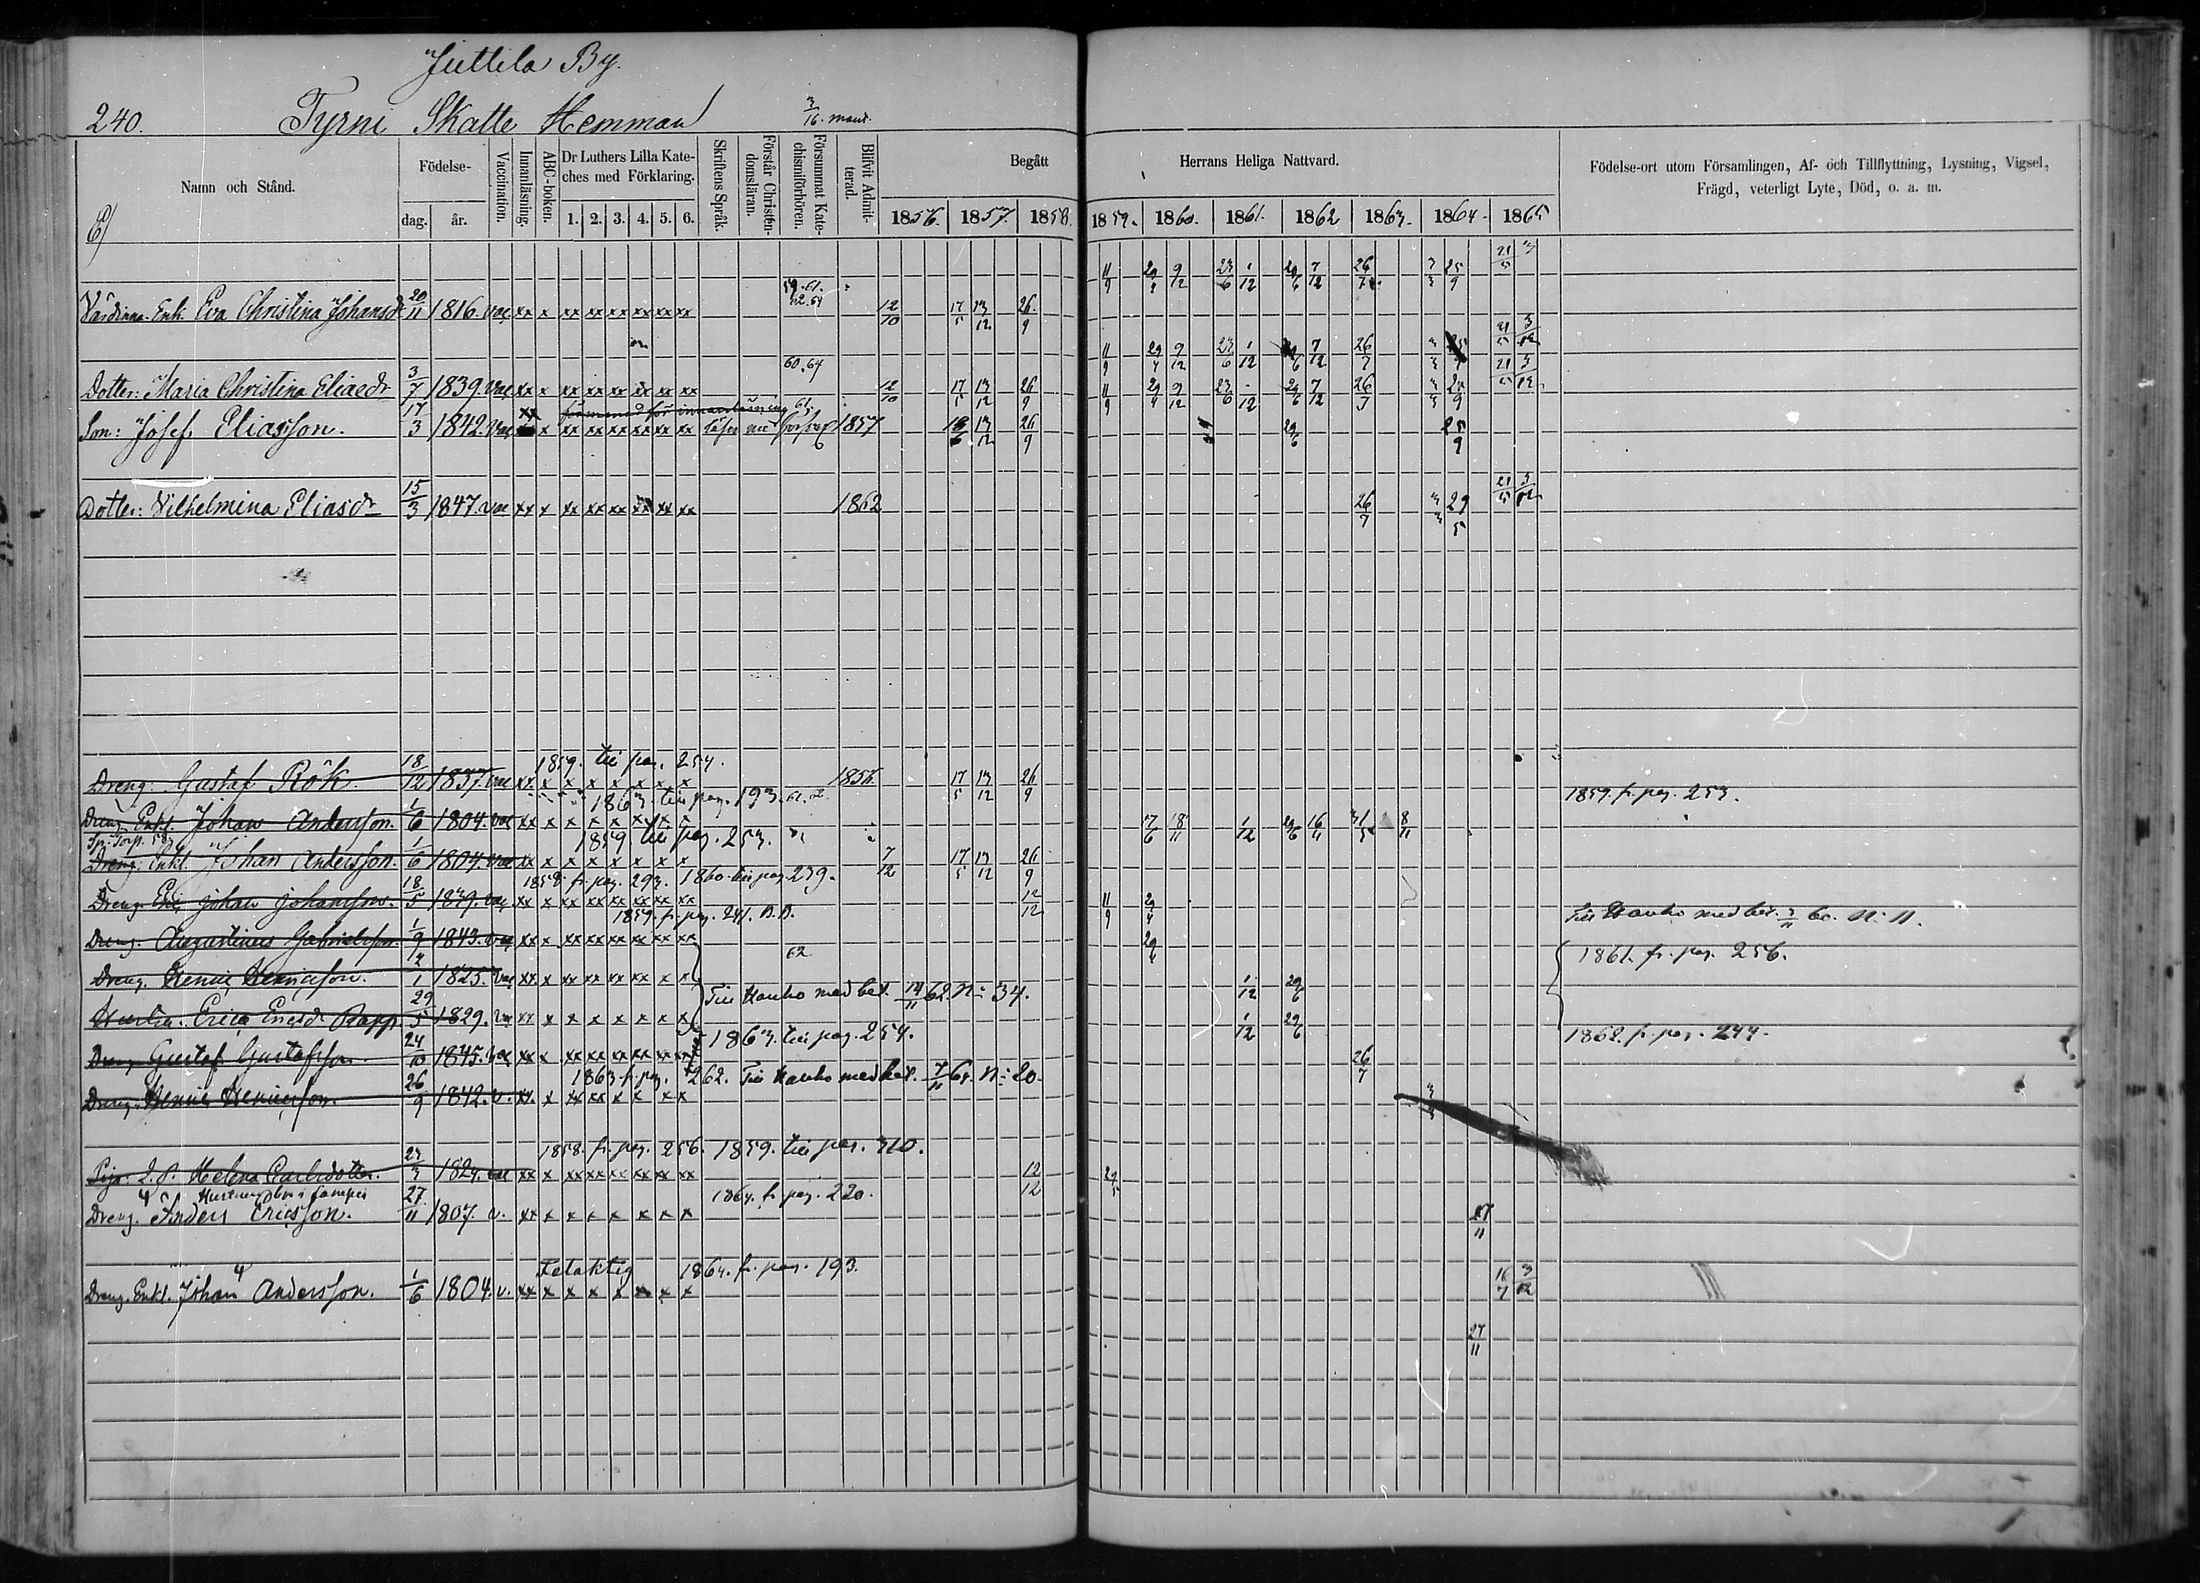 Juttila By.
240. Tyrni Skatte Hemman 3/16 mant.
Namn och Stånd.
Födelse-
dag. år.
Vaccination.
Innanläsning.
ABC-boken.
Dr Luthers Lilla Kate-
ches med Förklaring.
1. 2. 3. 4. 5. 6.
Skriftens Språk.
Förstår Christen-
domsläran.
Försummat Kate-
chismiförhören.
Blifvit Admit-
terad.
Begått Herrans Heliga Nattvard.
1856. 1857. 1858. 1859. 1860. 1861. 1862 1863. 1864. 1865
Födelse-ort utom Församlingen, Af- och Tillflyttning, Lysning, Vigsel,
Frägd, veterligt Lyte, Död, o. a. m.
59. 61.
62. 64
Värdinna. Enk. Eva Christina Johansdr 20/11 1816. vac xx x xx xx xx xx xx xx 12/10 17/5 13/12 26/9 11/9 29/4 9/12 23/6 1/12 29/6 7/12 26/7 3/3 25/9
60. 64
Dotter: Maria Christina Eliaedr 3/7 1839. vac xx x xx xx xx xx xx xx 12/10 17/5 13/12 26/9 11/9 29/4 9/12 23/6 1/12 29/6 7/12 26/7
Son: Josef Eliasson. 17/3 1842. vac x xx xx xx xx xx xx 1857 13/12 26/9 29/6 25/9
Dotter: Vilhelmina Eliasdr 15/3 1847. vac xx x xx xx xx xx xx xx 1862 26/7 3/3 29/5 21/5 3/12
1859. till pag. 254.
Dreng: Gustaf Rök. 18/12 1837. vac xx x x x x x x x 1856 17/5 13/12 26/9
1863. till pag. 193. 61. 62 1859. fr. pag. 253.
Dreng Enkl. Johan Andersson. 1/6 1804. vac xx x x x x x x x 7/6 18/11 1/12 29/6 16/11 31/5 8/11
1859. till pag. 253.
Dreng. Enkl. Johan Andersson. 1/6 1804. vac xx x x x x x x x 7/12 17/5 13/12 26/9
1858. fr. pag. 293. 1860. till pag. 239.
Dreng. Johan Johansson. 18/5 1839. vac xx x xx xx xx xx xx xx 12/12 11/9 29/4
1859. fr. pag. 241. Till Hauho med bet. 3/11 60. N: 11.
Dreng. Augustinus Gabrielsson. 1/9 1843. vac xx x xx xx xx xx xx xx 29/4
62 1861. fr. pag. 256.
Dreng. Henric Henricsson. 1825. vac xx x xx xx xx xx x x 1/12 29/6
Till Hauho med bet. 14/11 62. N: 34.
Hustru. Erica Ericsdr Rapp. 29/5 1829. vac xx x x x x x x x 1/12 29/6
1863. till pag. 254. 1862. fr. pag. 244.
Dreng Gustaf Gustafsson. 24/10 1845. vac xx x xx xx xx xx xx xx 26/7
1863. fr. pag. 262. Till Hauho med bet. 7/11 64. N: 20.
Dreng. Henric Henricsson. 26/9 1842. v. xx x xx xx x x x x
1858. fr. pag. 256. 1859. till pag. 310.
Piga: Helena Carlsdotter. 23/3 1824. vac xx x xx xx xx xx xx xx 12/12
Hustrun bor i
1864. fr. pag. 220.
Dreng. Anders Ericsson. 27/11 1807. v. xx x x x x x x x
Felaktig 1864. fr. pag. 193.
Dreng. Enkl. Johan Andersson. 1/6 1804. v. xx x x x x x x x 16/7 3/12
27/11